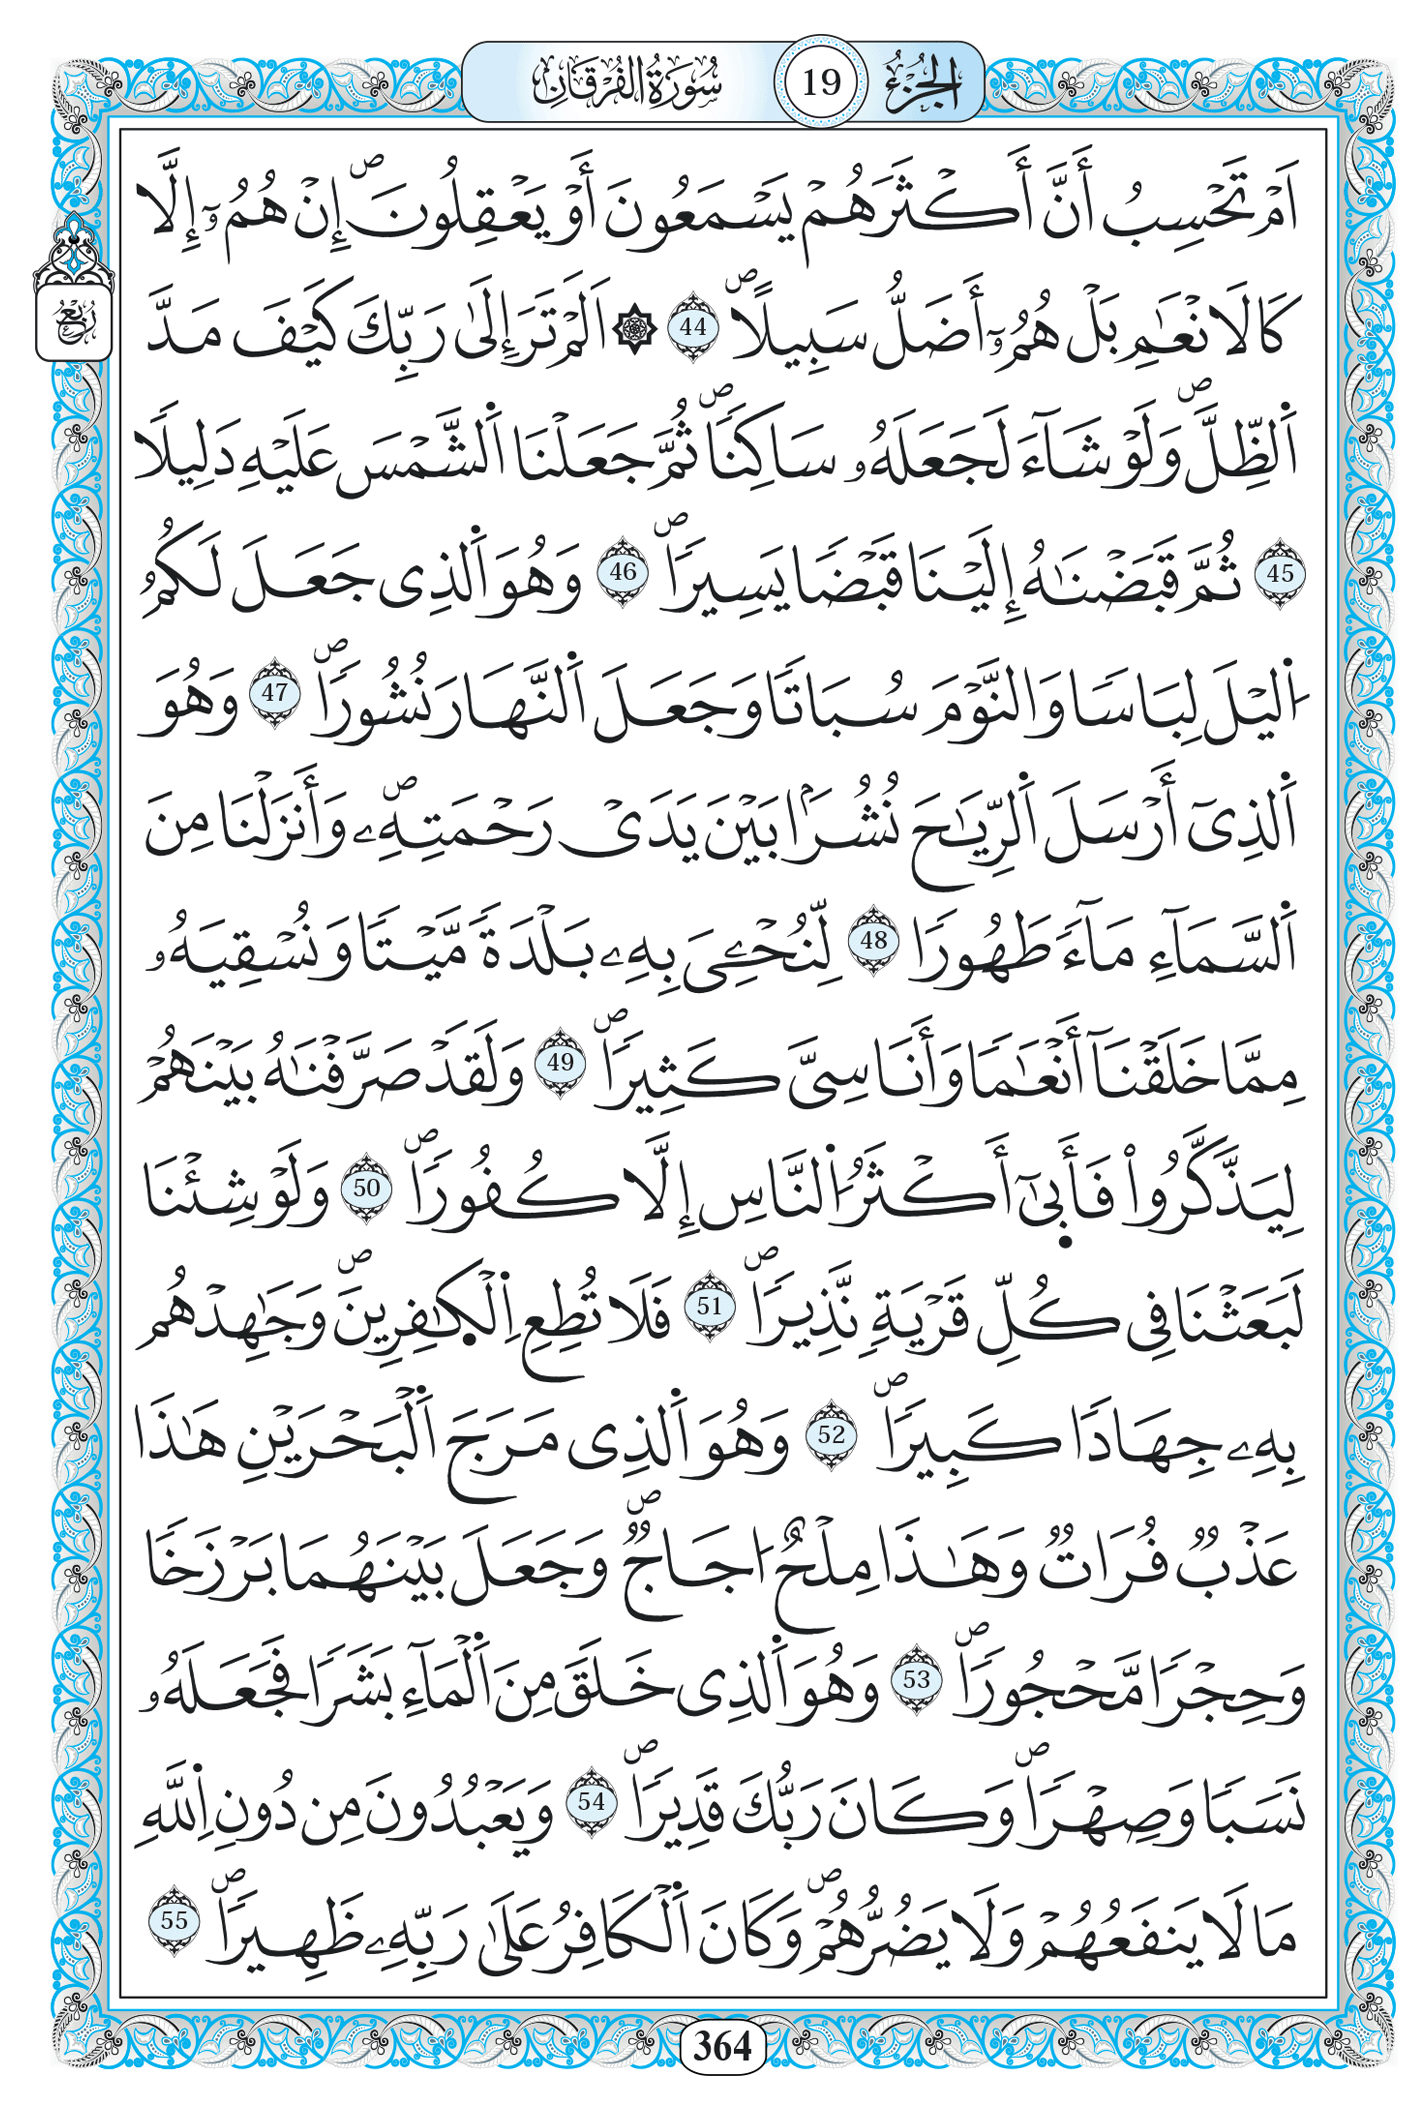 الجزء 19 سورة الفرقان
اَمْ تَحْسِبُ أَنَّ أَكْثَرَهُمْ يَسْمَعُونَ أَوْ يَعْقِلُونَ ۖ إِنْ هُمُۥٓ إِلَّا
كَالَانْعَٰمِ بَلْ هُمُۥٓ أَضَلُّ سَبِيلًا ۖ 44 ۞ اَلَمْ تَرَ إِلَىٰ رَبِّكَ كَيْفَ مَدَّ
ربع
اَ۬لظِّلَّ ۖ وَلَوْ شَآءَ لَجَعَلَهُۥ سَاكِنٗا ۖ ثُمَّ جَعَلْنَا اَ۬لشَّمْسَ عَلَيْهِ دَلِيلٗا
45 ثُمَّ قَبَضْنَٰهُ إِلَيْنَا قَبْضٗا يَسِيرٗا ۖ 46 وَهُوَ اَ۬لذِى جَعَلَ لَكُمُ
اُ۬ليْلَ لِبَاسٗا وَالنَّوْمَ سُبَاتٗا وَجَعَلَ اَ۬لنَّهَارَ نُشُورٗا ۖ 47 وَهُوَ
اَ۬لذِىٓ أَرْسَلَ اَ۬لرِّيَٰحَ نُشُرَۢا بَيْنَ يَدَىْ رَحْمَتِهِۦ ۖ وَأَنزَلْنَا مِنَ
اَ۬لسَّمَآءِ مَآءٗ طَهُورٗا 48 لِّنُحْـِۧىَ بِهِۦ بَلْدَةٗ مَّيْتٗا وَنُسْقِيَهُۥ
مِمَّا خَلَقْنَآ أَنْعَٰمٗا وَأَنَاسِىَّ كَثِيرٗا ۖ 49 وَلَقَدْ صَرَّفْنَٰهُ بَيْنَهُمْ
لِيَذَّكَّرُواْ فَأَبَىٰٓ أَكْثَرُ اُ۬لنَّاسِ إِلَّا كُفُورٗا ۖ 50 وَلَوْ شِئْنَا
لَبَعَثْنَا فِى كُلِّ قَرْيَةٖ نَّذِيرٗا ۖ 51 فَلَا تُطِعِ اِ۬لْكٰ۪فِرِينَ ۖ وَجَٰهِدْهُم
بِهِۦ جِهَادٗا كَبِيرٗا ۖ 52 وَهُوَ اَ۬لذِى مَرَجَ اَ۬لْبَحْرَيْنِ هَٰذَا
عَذْبٞ فُرَاتٞ وَهَٰذَا مِلْحٌ اجَاجٞ ۖ وَجَعَلَ بَيْنَهُمَا بَرْزَخٗا
وَحِجْرٗا مَّحْجُورٗا ۖ 53 وَهُوَ اَ۬لذِى خَلَقَ مِنَ اَ۬لْمَآءِ بَشَرٗا فَجَعَلَهُۥ
نَسَبٗا وَصِهْرٗا ۖ وَكَانَ رَبُّكَ قَدِيرٗا ۖ 54 وَيَعْبُدُونَ مِن دُونِ اِ۬للَّهِ
مَا لَا يَنفَعُهُمْ وَلَا يَضُرُّهُمْ ۖ وَكَانَ اَ۬لْكَافِرُ عَلَىٰ رَبِّهِۦ ظَهِيرٗا ۖ 55
364